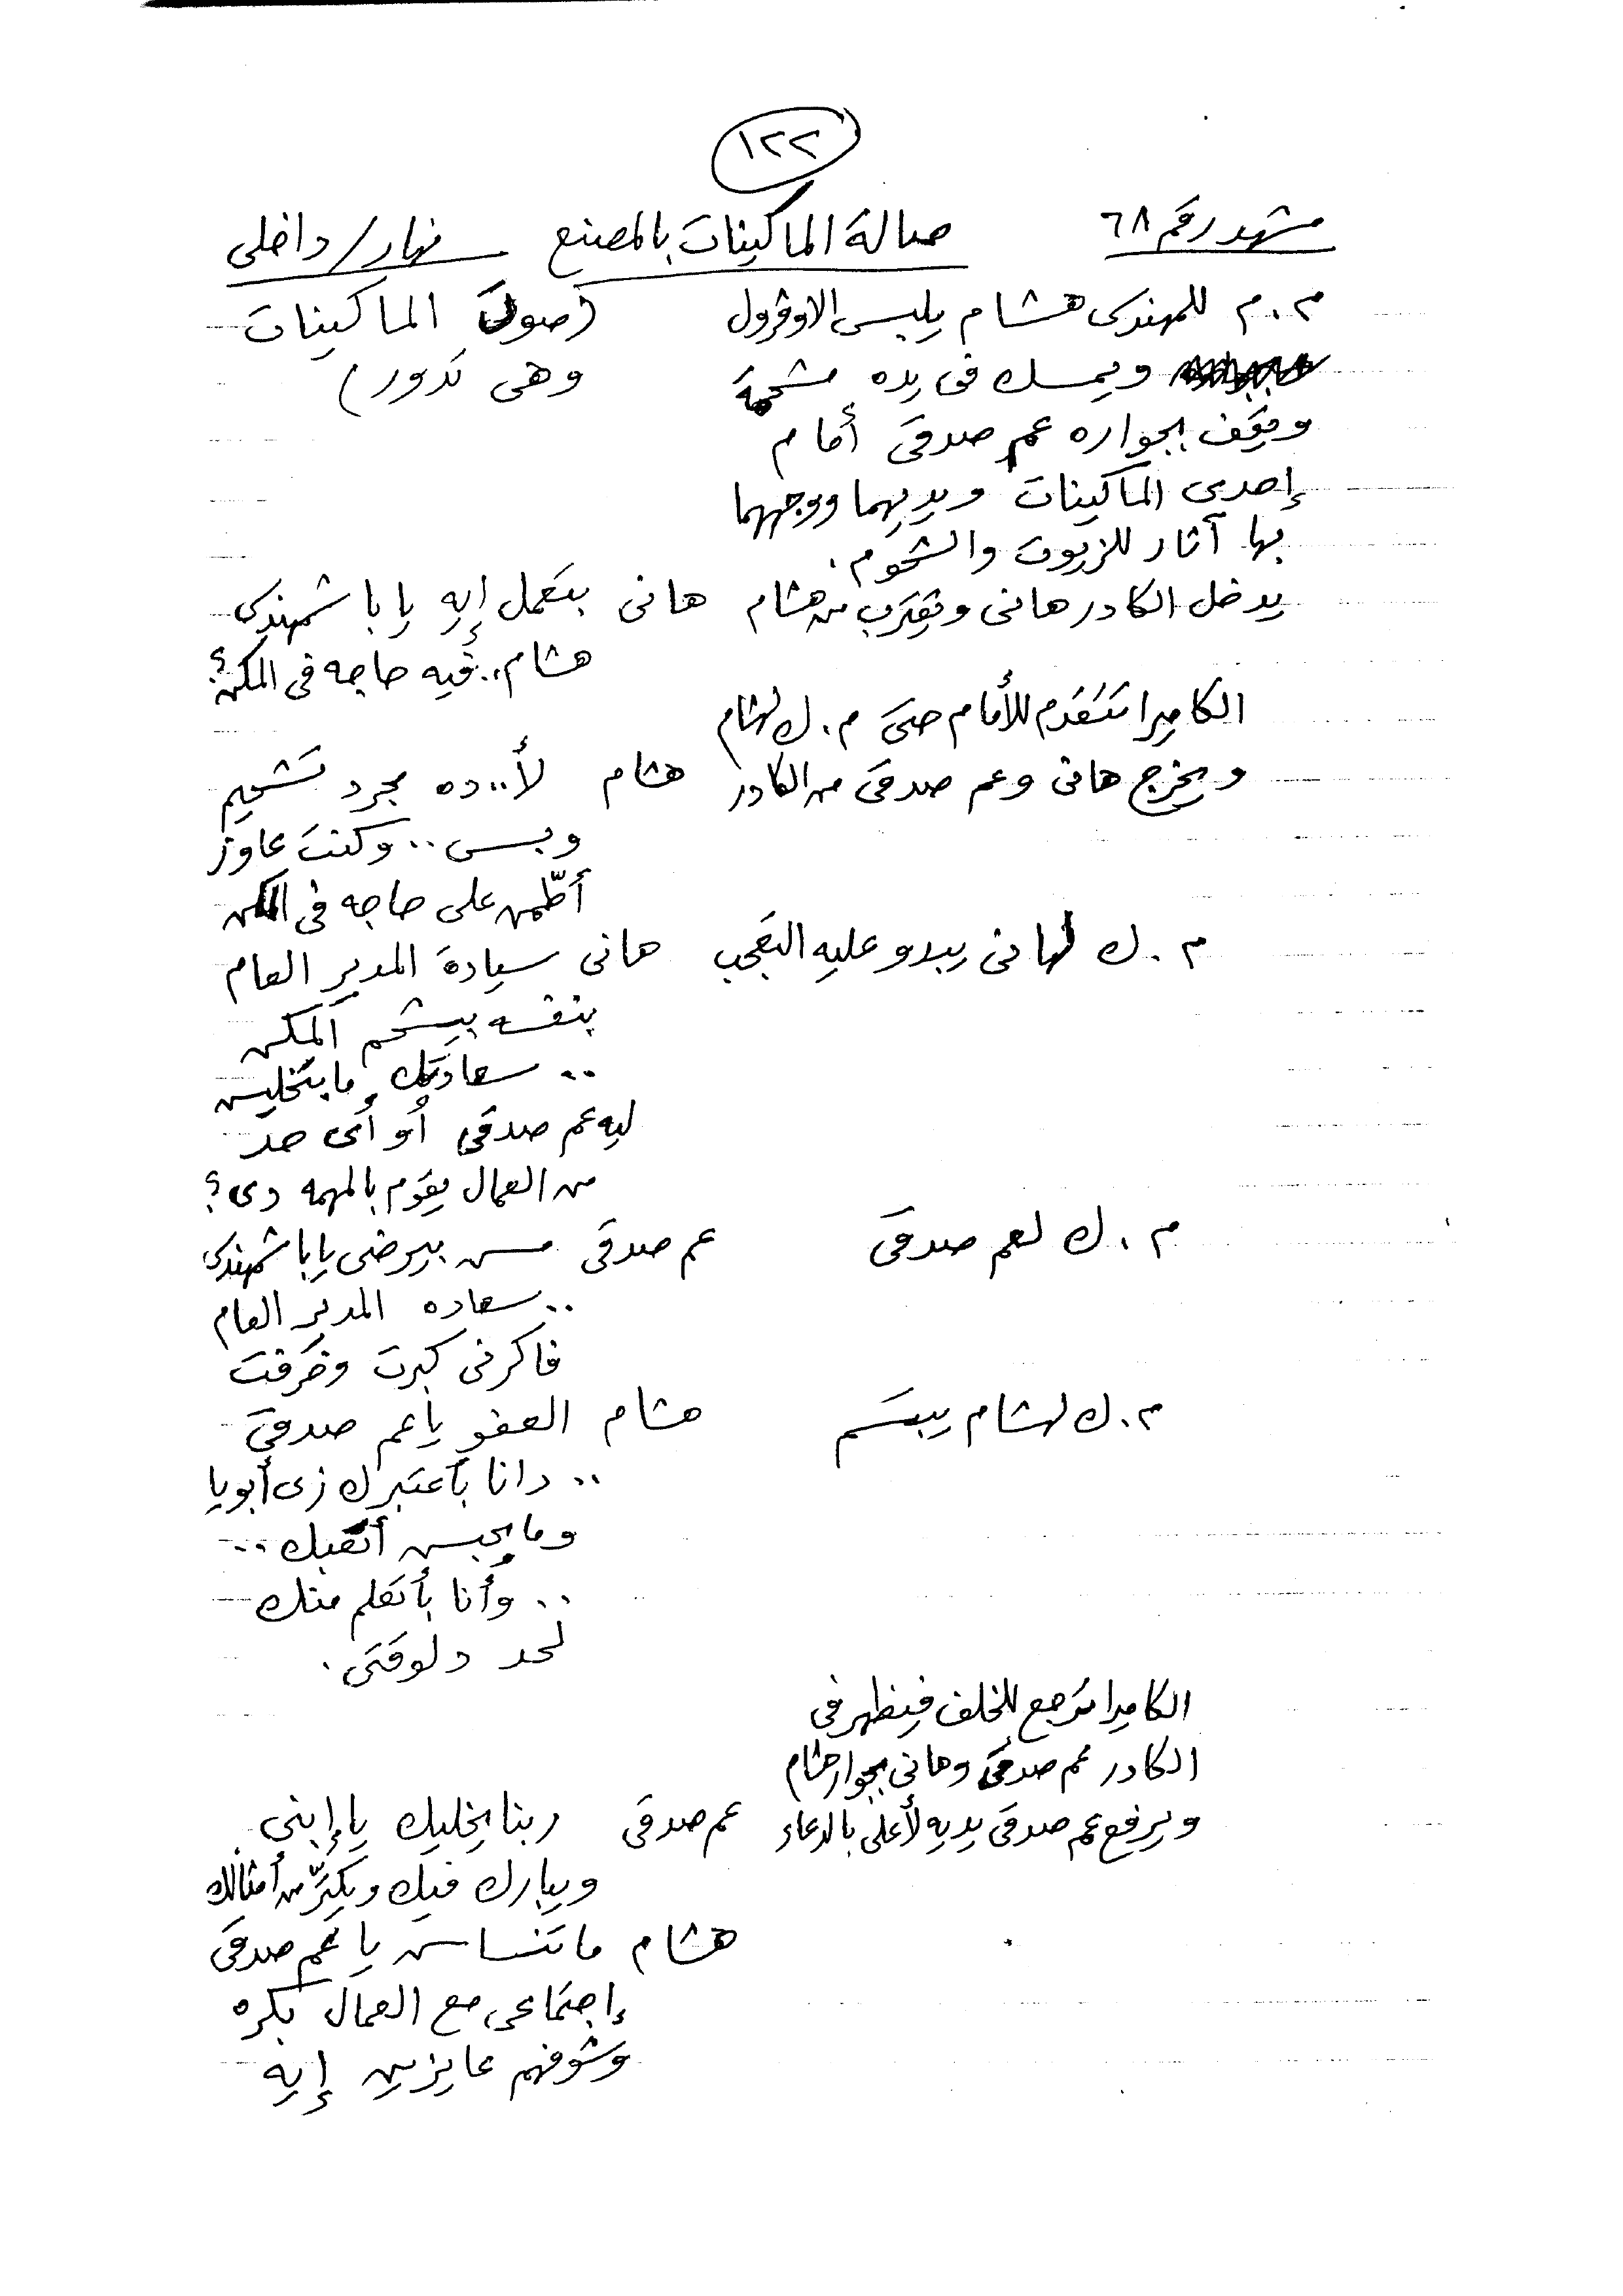 ١٢٢
مشهد رقم ٦٨ صالة الماكينات بالمصنع نهار/داخلى
م.م للمهندس هشام يلبس الاوفرول (صوت الماكينات
ويمسك فى يده مشحمة وهى تدور)
ويقف بجواره عم صدقى أمام
إحدى الماكينات ويديهما ووجههما
بها آثار للزيوت والشحوم.
يدخل الكادر هانى ويقترب من هشام هانى بتعمل إيه يا باشمهندس
هشام.. فيه حاجه فى المكن؟
الكاميرا تتقدم للأمام حتى م.ك لهشام
ويخرج هانى وعم صدقى من الكادر هشام لأ..ده مجرد تشحيم
وبس.. وكنت عاوز
أطّمن على حاجه فى المكن
م.ك لهانى يبدو عليه التعجب هانى سيادة المدير العام
بنفسه بيشحم المكن
.. سعادتك ما بتخليش
ليه عم صدقى أو أى حد
من العمال يقوم بالمهمه دى؟
م.ك لعم صدقى عم صدقى مش بيرضى يا باشمهندس
.. سعاده المدير العام
فاكرنى كبرت وخرفت
م.ك لهشام يبتسم هشام العفو يا عم صدقى
.. دانا بأعتبرك زى أبويا
وما يحبش أتعبك..
.. وأنا بأتعلم منك
لحد دلوقتى.
الكاميرا ترجع للخلف فيظهر فى
الكادر عم صدقى وهانى بجوار هشام
ويرفع عم صدقى يديه لأعلى بالدعاء عم صدقى ربنا يخليك يا إبنى
ويبارك فيك ويكتّر من أمثالك
هشام ما تنساش يا عم صدقى
إجتماعى مع العمال بكره
وشوفهم عايزين إيه